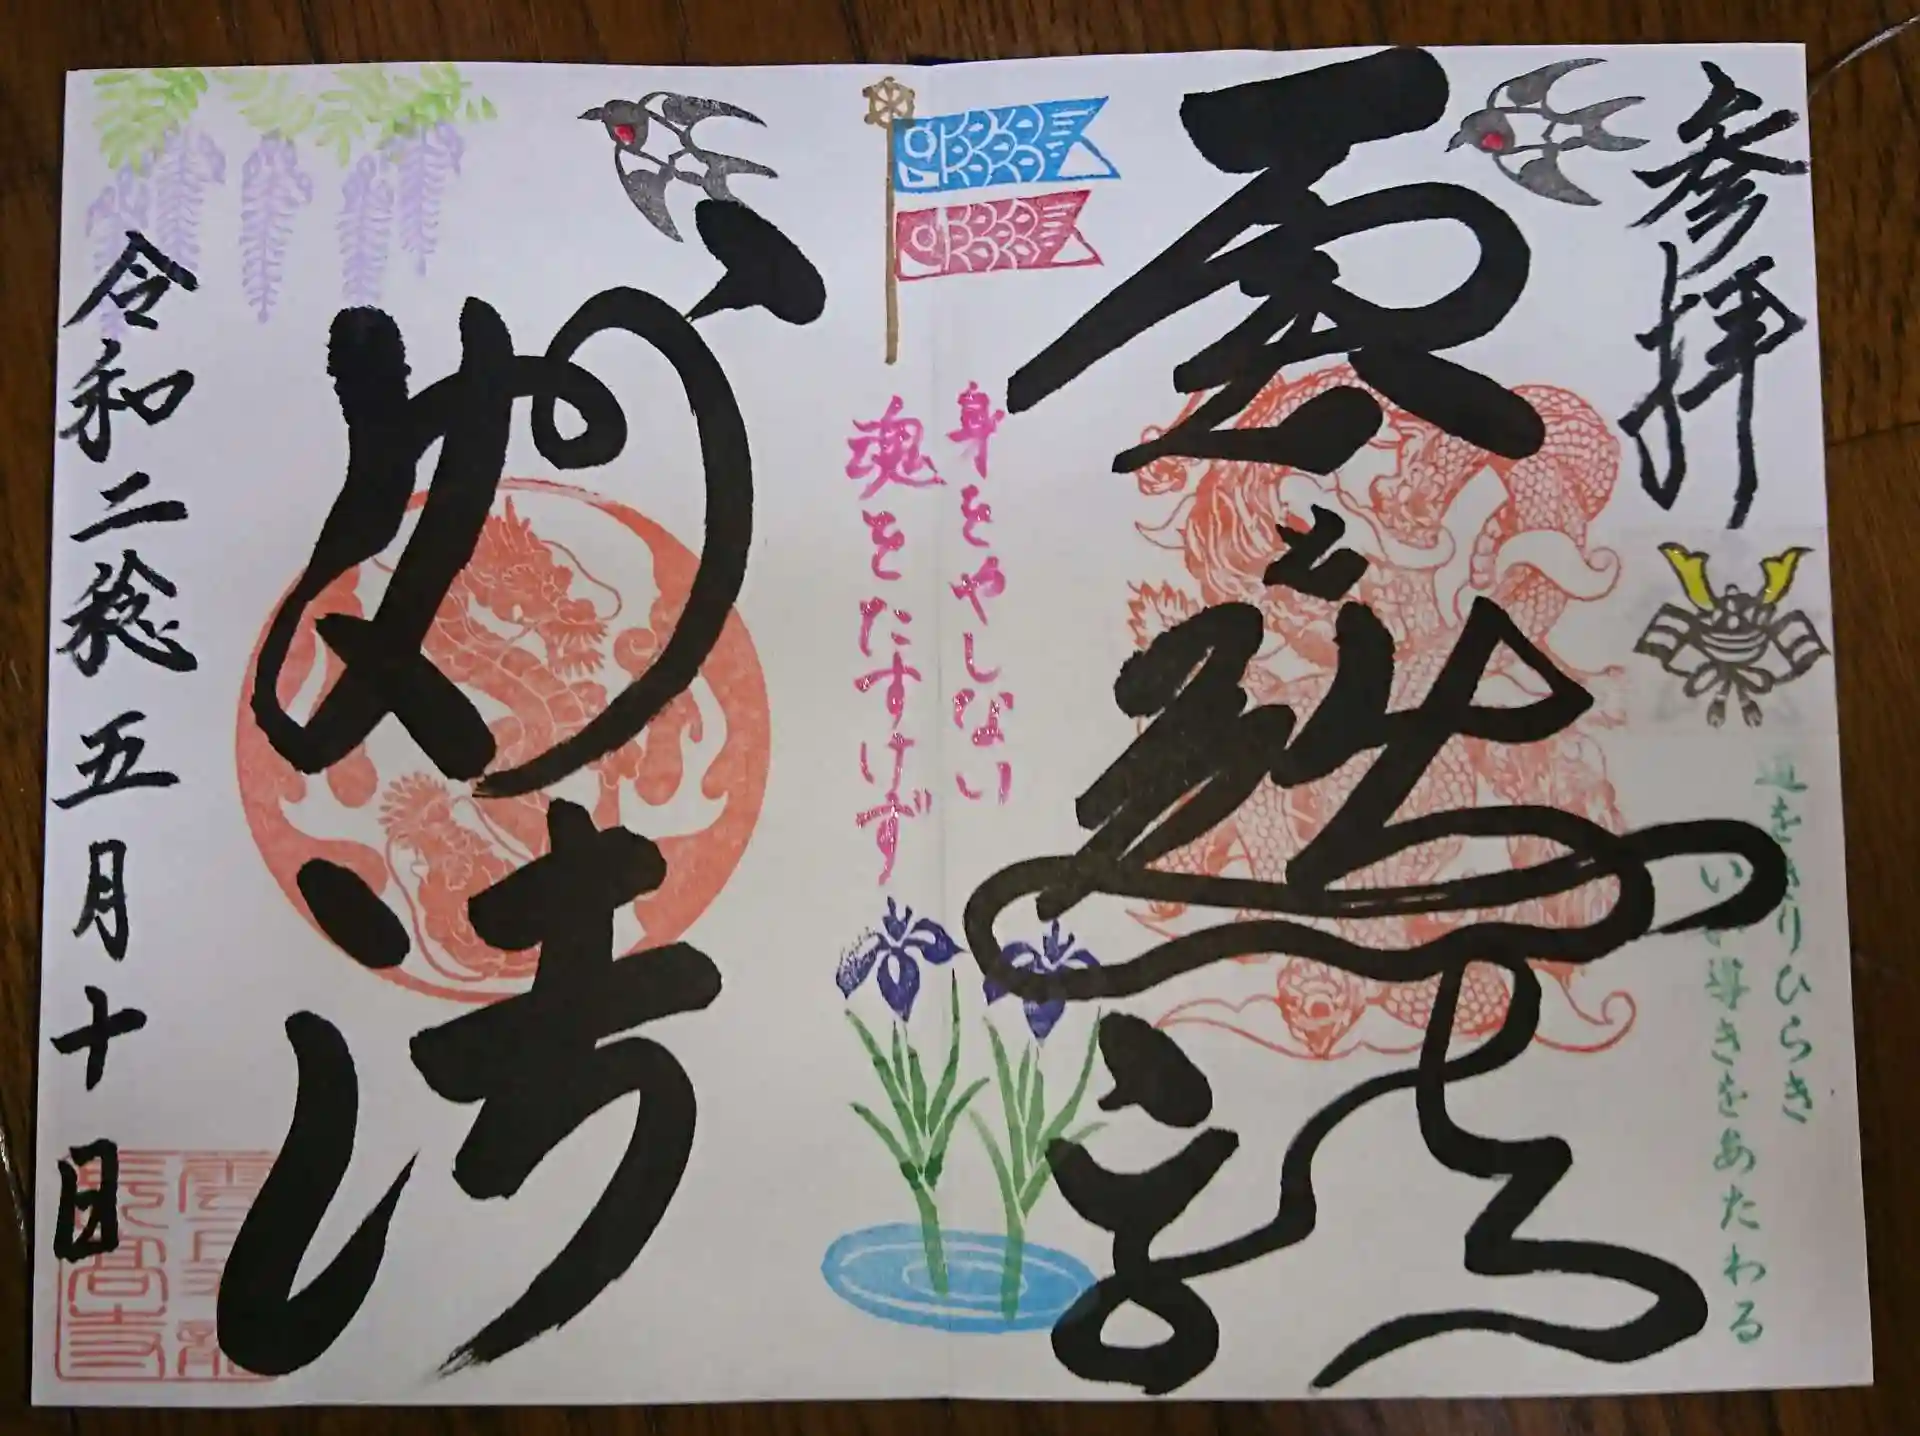 参拝
道をきりひらき
導きをあたわる
雲
龍
身をやしない
魂をたすけず
妙法
令和二稔五月十日